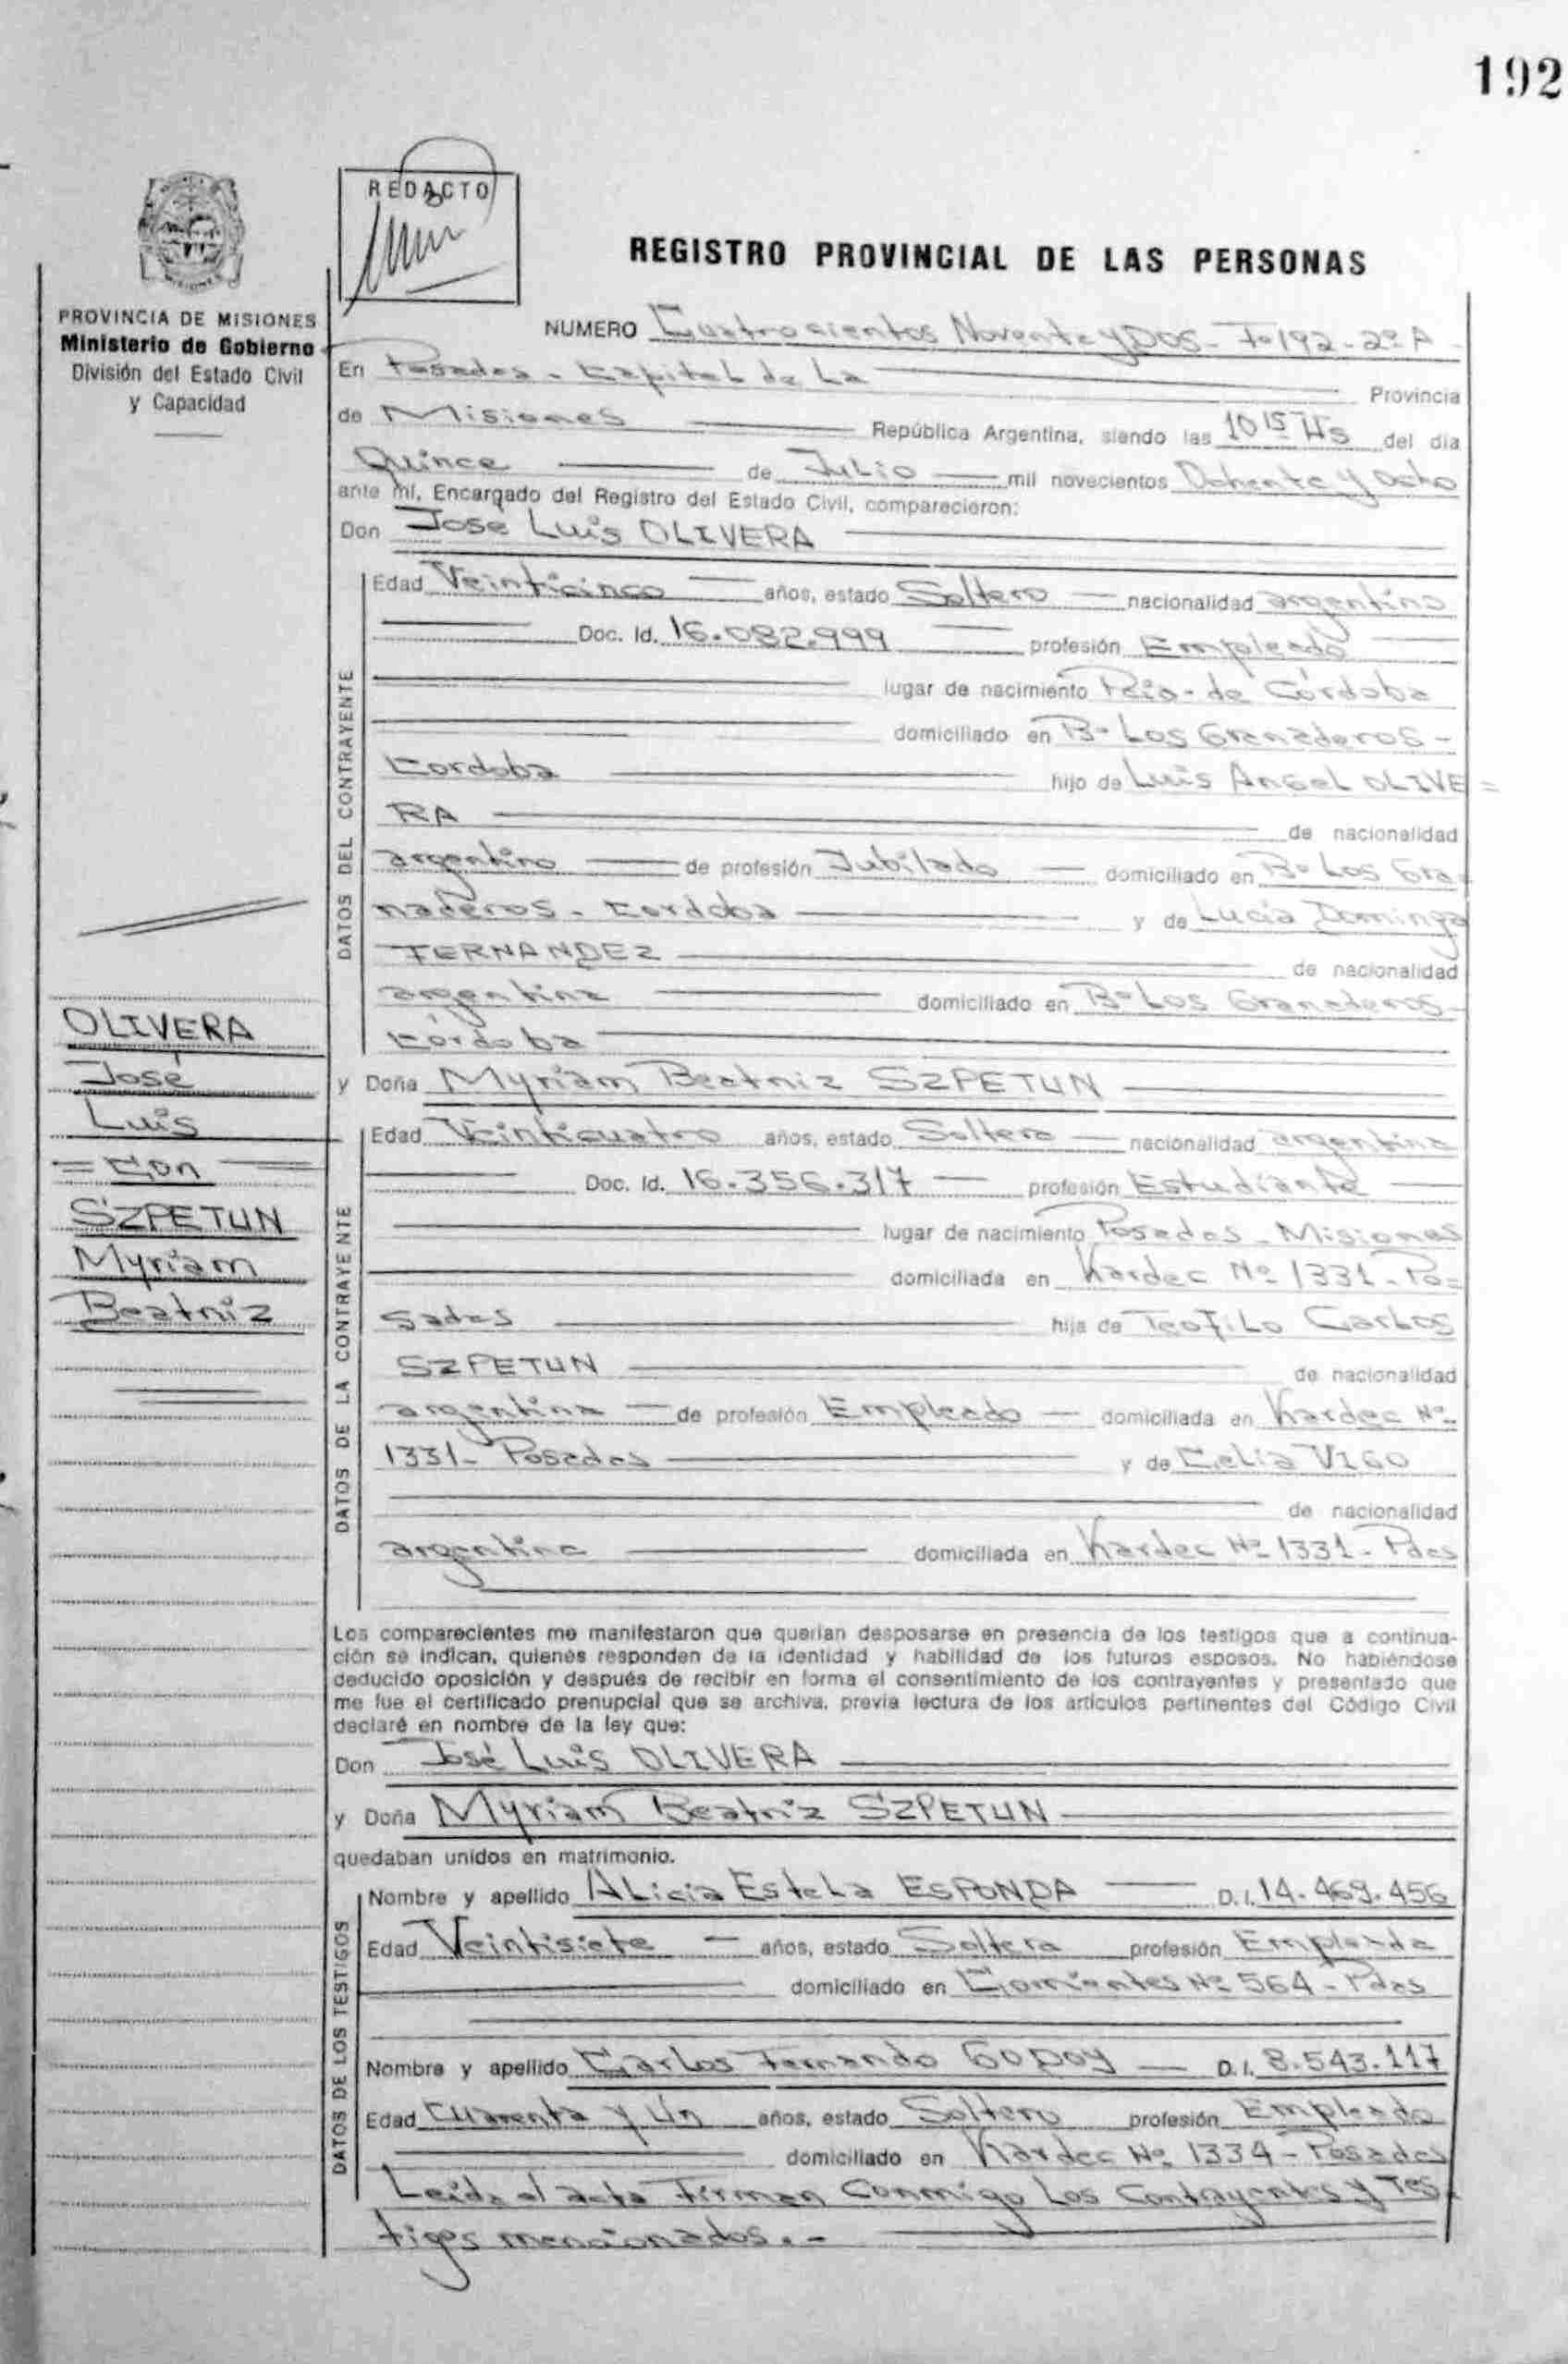 192
REDACTO
REGISTRO PROVINCIAL DE LAS PERSONAS
PROVINCIA DE MISIONES
Ministerio de Gobierno
División del Estado Civil
y Capacidad
NUMERO Cuatrocientos Noventa y DOS - Fº 192 - 2º A -
En Posadas - Capital de La Provincia
de Misiones República Argentina, siendo las 10 15 Hs del día
Quince de Julio mil novecientos Ochenta y Ocho
ante mí, Encargado del Registro del Estado Civil, comparecieron:
Don Jose Luis OLIVERA
DATOS DEL CONTRAYENTE
Edad Veinticinco años, estado Soltero nacionalidad argentino
Doc. Id. 16.082.999 profesión Empleado
lugar de nacimiento Pcia- de Córdoba
domiciliado en Bº Los Granaderos -
Cordoba hijo de Luis Angel OLIVE=
RA de nacionalidad
argentino de profesión Jubilado domiciliado en Bº Los Gra-
naderos - Cordoba y de Lucia Dominga
FERNANDEZ de nacionalidad
argentina domiciliado en Bº Los Granaderos -
Córdoba
y Doña Myriam Beatriz SZPETUN
DATOS DE LA CONTRAYENTE
Edad Veinticuatro años, estado Soltera nacionalidad argentina
Doc. Id. 16.356.317 profesión Estudiante
lugar de nacimiento Posadas - Misiones
domiciliada en Kardec Nº 1331 - Po=
sadas hija de Teofilo Carlos
SZPETUN de nacionalidad
argentina de profesión Empleado domiciliada en Kardec Nº
1331- Posadas y de Celia VIGO
de nacionalidad
argentina domiciliada en Kardec Nº 1331 - Pdas
OLIVERA
José
Luis
= Con =
SZPETUN
Myriam
Beatriz
Los comparecientes me manifestaron que querían desposarse en presencia de los testigos que a continua-
ción se indican, quienes responden de la identidad y habilidad de los futuros esposos. No habiéndose
deducido oposición y después de recibir en forma el consentimiento de los contrayentes y presentado que
me fue el certificado prenupcial que se archiva, previa lectura de los artículos pertinentes del Código Civil
declaré en nombre de la ley que:
Don José Luis OLIVERA
y Doña Myriam Beatriz SZPETUN
quedaban unidos en matrimonio.
DATOS DE LOS TESTIGOS
Nombre y apellido ALicia Estela ESPONDA D.I. 14.469.456
Edad Veintisiete años, estado Soltera profesión Empleada
domiciliado en Corrientes Nº 564 - Pdas
Nombre y apellido Carlos Fernando GODOY D.I. 8.543.117
Edad Cuarenta y Un años, estado Soltero profesión Empleado
domiciliado en Kardec Nº 1334 - Posadas
Leida el acta Firman Conmigo Los Contrayentes y Tes-
tigos mencionados.-